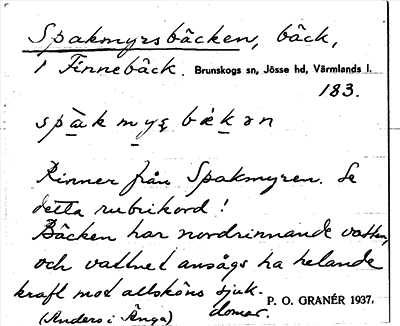 Spakmyrsbäcken, bäck,
i Finnebäck. Brunskogs sn, Jösse hd, Värmlands l.
183.
Rinner från Spakmyren. Se
detta rubrikord!
Bäcken har nordrinnande vatten,
och vattnet ansågs ha helande
kraft mot allsköns sjuk-
domar.
(Anders i Änga) P. O. GRANÉR 1937.